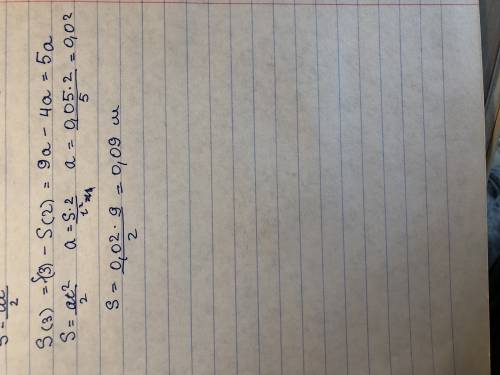 S(3) = S(3) - S(2) = 9a - 4a = 5a
S = at²/2 a = S·2/t² a = 0,05·2/5 = 0,02
S = 0,02·9/2 = 0,09 м